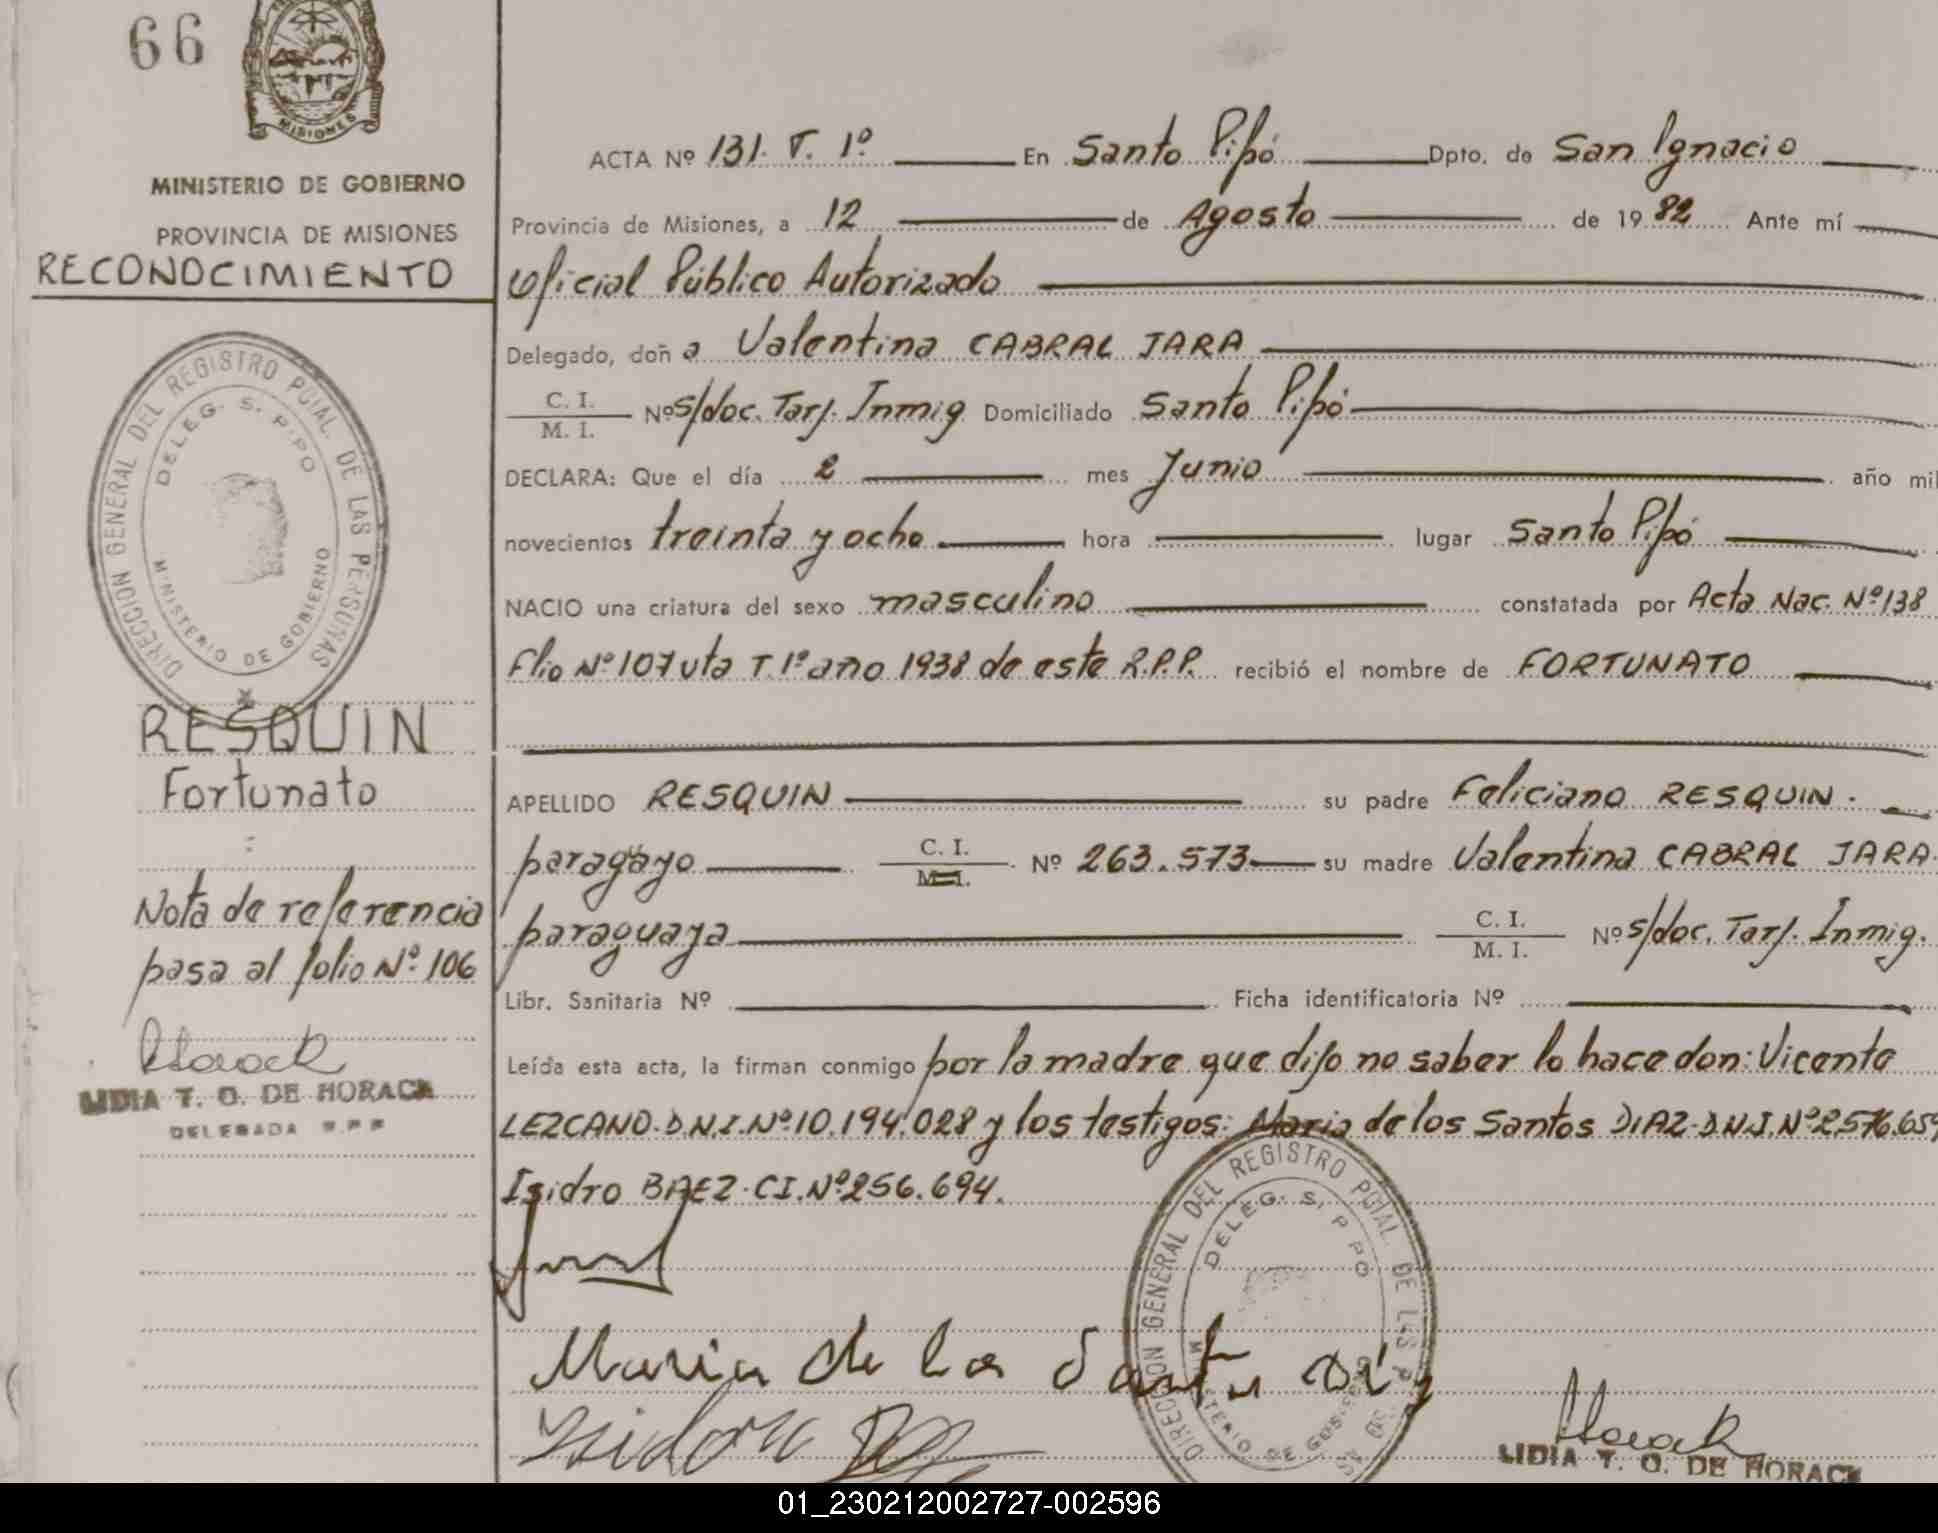 66
MISIONES
MINISTERIO DE GOBIERNO
PROVINCIA DE MISIONES
RECONOCIMIENTO
DIRECCION GENERAL DEL REGISTRO PCIAL. DE LAS PERSONAS
DELEG. S. PIPO
MINISTERIO DE GOBIERNO
RESQUIN
Fortunato
Nota de referencia
pasa al folio Nº 106
Horack
LIDIA T. O. DE HORACK
DELEGADA R.P.P
ACTA Nº 131. T. 1º En Santo Pipó Dpto. de San Ignacio
Provincia de Misiones, a 12 de Agosto de 1982 Ante mí
Oficial Público Autorizado
Delegado, doña Valentina CABRAL JARA
C. I.
M. I. Nº s/doc. Tarj. Inmig Domiciliado Santo Pipó
DECLARA: Que el día 2 mes Junio año mil
novecientos treinta y ocho hora lugar Santo Pipó
NACIO una criatura del sexo masculino constatada por Acta Nac. Nº 138
Flio Nº 107 vta T. 1º año 1938 de este R.P.P. recibió el nombre de FORTUNATO
APELLIDO RESQUIN su padre Feliciano RESQUIN.
paragüayo C. I.
M. I. Nº 263.573 su madre Valentina CABRAL JARA
paraguaya C. I.
M. I. Nº s/doc. Tarj. Inmig.
Libr. Sanitaria Nº Ficha identificatoria Nº
Leída esta acta, la firman conmigo por la madre que dijo no saber lo hace don: Vicente
LEZCANO. D.N.I. Nº 10.194.028 y los testigos: Maria de los Santos DIAZ. D.N.I. Nº 2.576.659
Isidro BAEZ. CI. Nº 256.694.
DIRECCION GENERAL DEL REGISTRO PCIAL. DE LAS
DELEG. S. PIPO
MINISTERIO DE GOBIERNO
Maria de los Santos
Horack
LIDIA T. O. DE HORACK
01_230212002727-002596